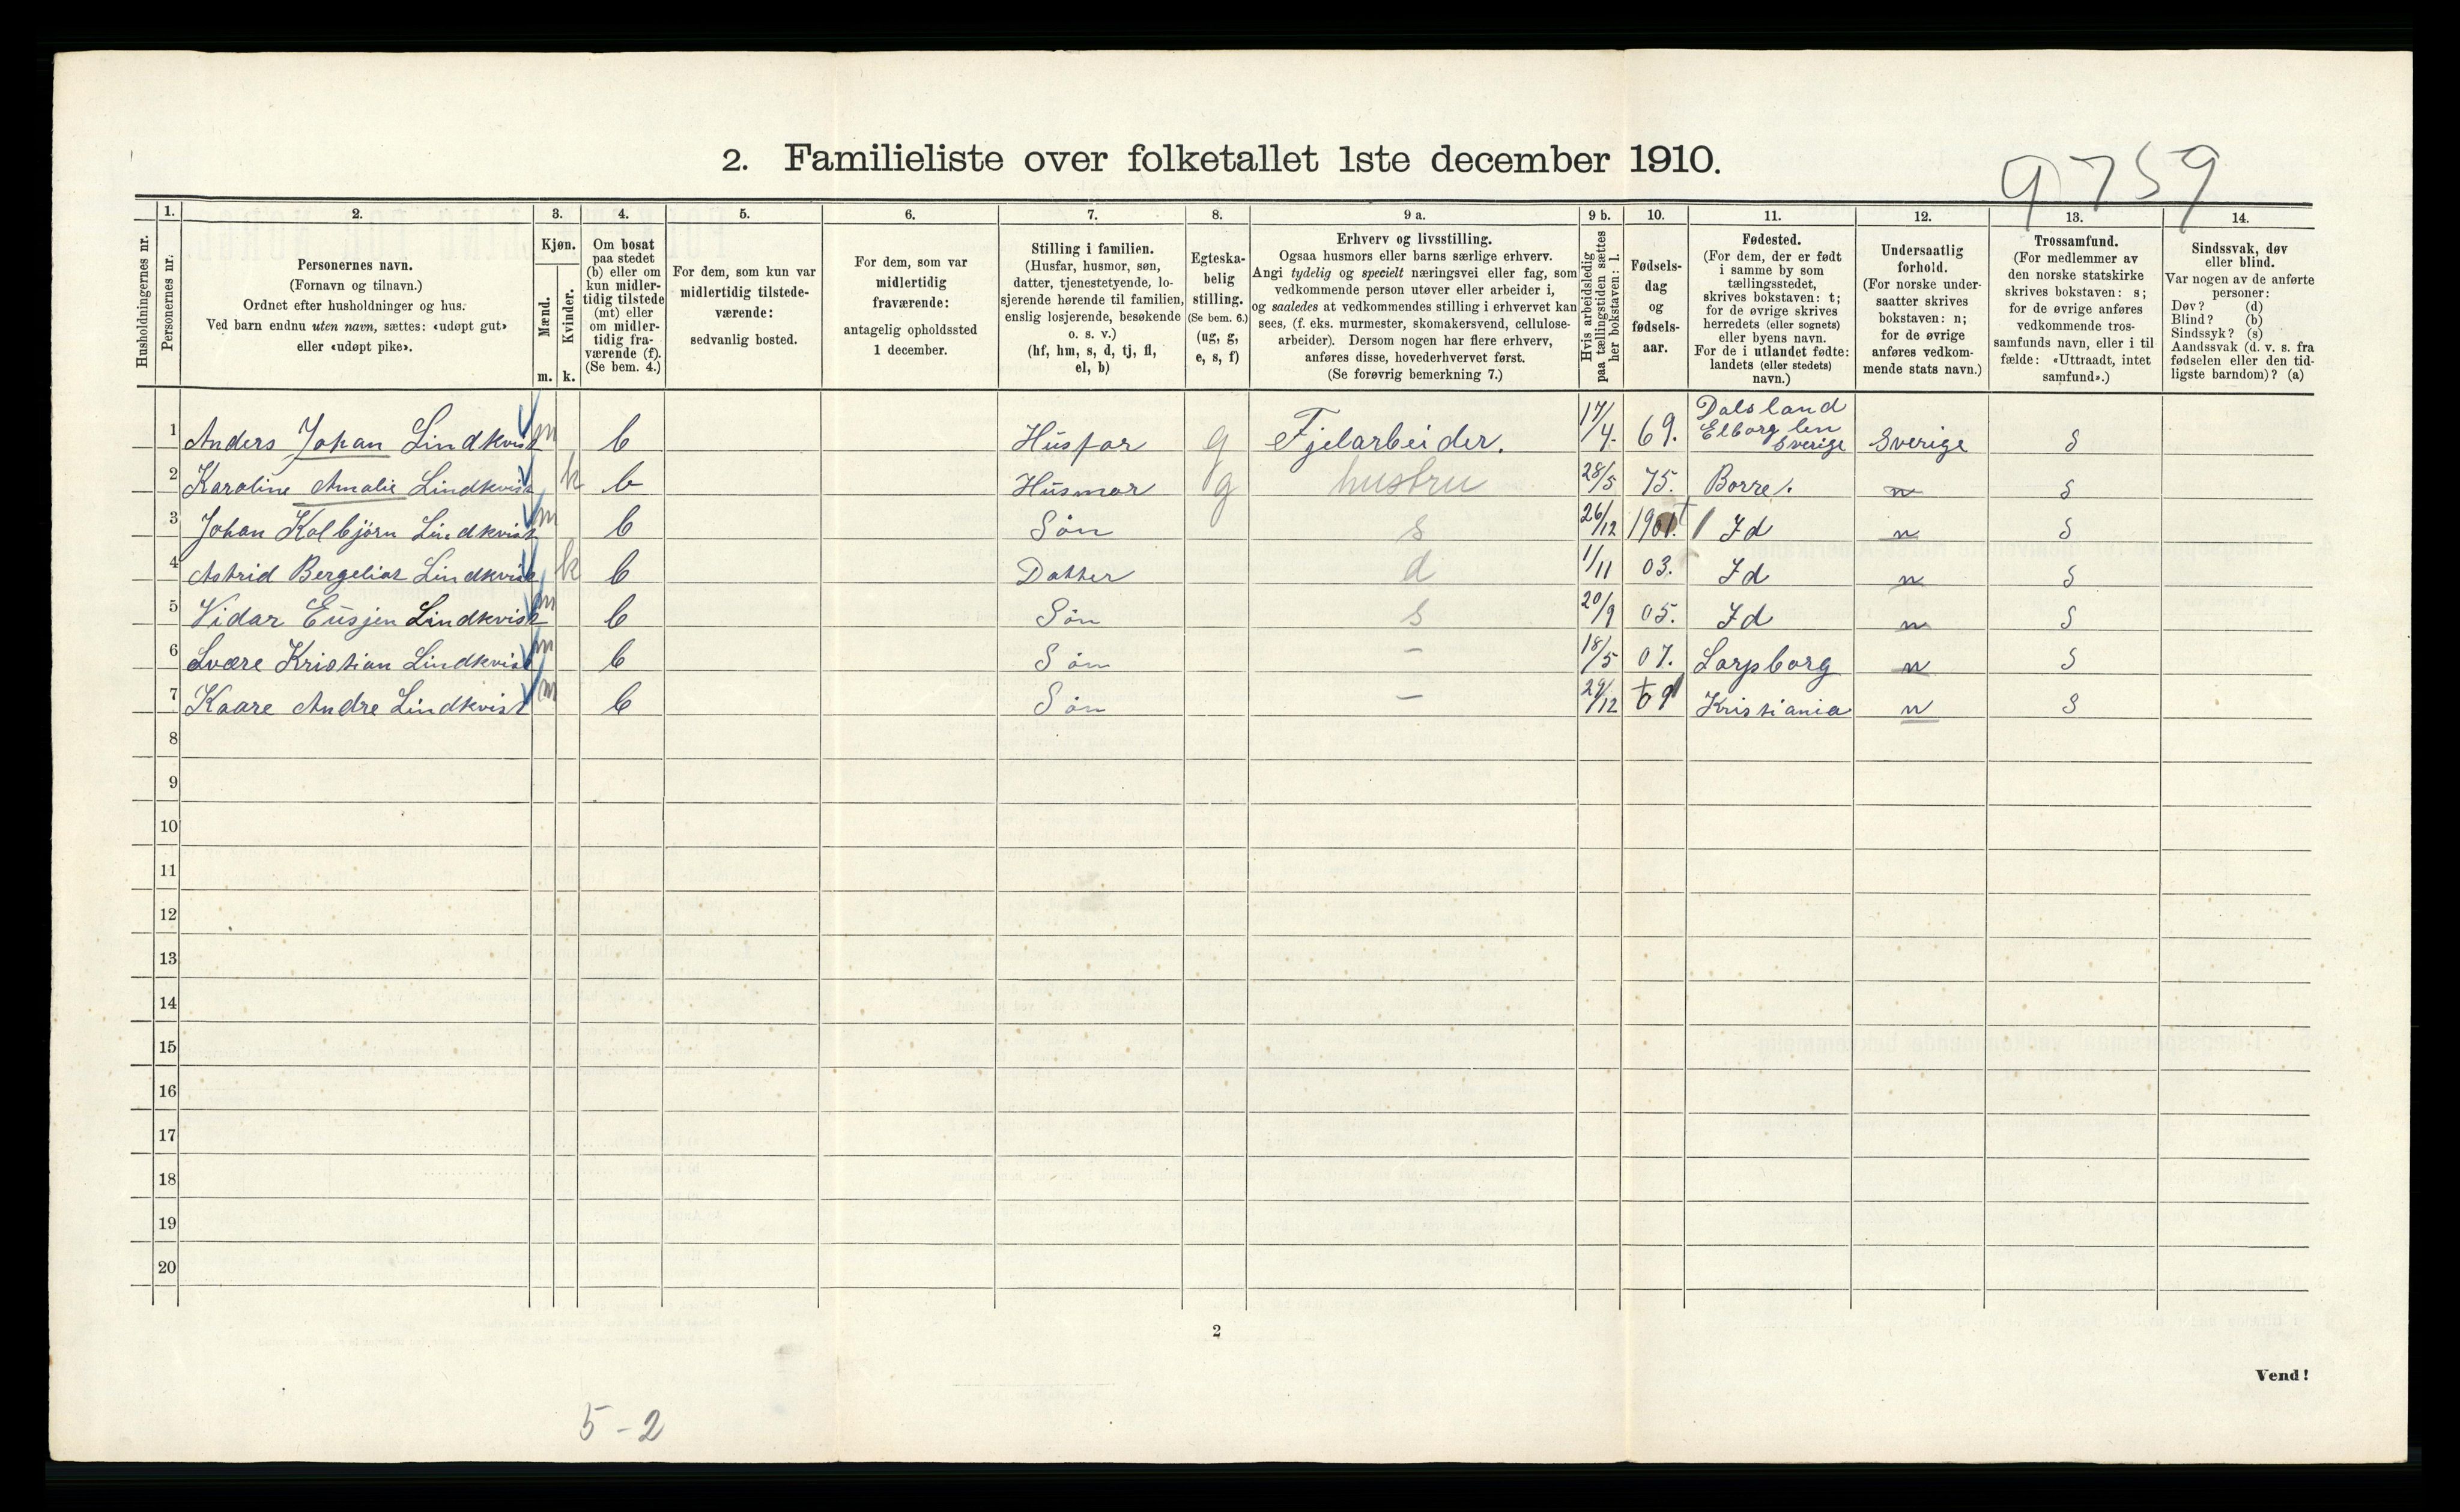 2. Familieliste over folketallet 1ste december 1910.
9759
Husholdningernes nr.
1.
Personernes nr.
2.
Personernes navn.
(Fornavn og tilnavn.)
Ordnet efter husholdninger og hus.
Ved barn endnu uten navn, sættes: «udøpt gut»
eller «udøpt pike».
3.
Kjøn.
Mænd.
Kvinder.
m. k.
4.
Om bosat
paa stedet
(b) eller om
kun midler-
tidig tilstede
(mt) eller
om midler-
tidig fra-
værende (f).
(Se bem. 4.)
5.
For dem, som kun var
midlertidig tilstede-
værende:
sedvanlig bosted.
6.
For dem, som var
midlertidig
fraværende:
antagelig opholdssted
1 december.
7.
Stilling i familien.
(Husfar, husmor, søn,
datter, tjenestetyende, lo-
sjerende hørende til familien,
enslig losjerende, besøkende
o. s. v.)
(hf, hm, s, d, tj, fl,
el, b)
8.
Egteska-
belig
stilling.
(Se bem. 6.)
(ug, g,
e, s, f)
9 a.
Erhverv og livsstilling.
Ogsaa husmors eller barns særlige erhverv.
Angi tydelig og specielt næringsvei eller fag, som
vedkommende person utøver eller arbeider i,
og saaledes at vedkommendes stilling i erhvervet kan
sees, (f. eks. murmester, skomakersvend, cellulose-
arbeider). Dersom nogen har flere erhverv,
anføres disse, hovederhvervet først.
(Se forøvrig bemerkning 7.)
9 b.
Hvis arbeidsledig
paa tællingstiden sættes
her bokstaven: l.
10.
Fødsels-
dag
og
fødsels-
aar.
11.
Fødested.
(For dem, der er født
i samme by som
tællingsstedet,
skrives bokstaven: t;
for de øvrige skrives
herredets (eller sognets)
eller byens navn.
For de i utlandet fødte:
landets (eller stedets)
navn.)
12.
Undersaatlig
forhold.
(For norske under-
saatter skrives
bokstaven: n;
for de øvrige
anføres vedkom-
mende stats navn.)
13.
Trossamfund.
(For medlemmer av
den norske statskirke
skrives bokstaven: s;
for de øvrige anføres
vedkommende tros-
samfunds navn, eller i til
fælde: «Uttraadt, intet
samfund».)
14.
Sindssvak, døv
eller blind.
Var nogen av de anførte
personer:
Døv? (d)
Blind? (b)
Sindssyk? (s)
Aandssvak (d. v. s. fra
fødselen eller den tid-
ligste barndom)? (a)
1 Anders Johan Lindkvist m b Husfar g Fjelarbeider. 17/4. 69. Dalsland Elborg len Sverige Sverige S
2 Karoline Amalie Lindkvist k b Husmor g hustru 28/5 75. Borre. n S
3 Johan Kolbjörn Lindkvist m b Sön s 26/12 1901. Id n S
4 Astrid Bergeliot Lindkvist k b Datter d 1/11 03. Id n S
5 Vidar Eusjen Lindkvist m b Sön s 20/9 05. Id n S
6 Svære Kristian Lindkvist m b Sön - 18/5 07. Sarpborg n S
7 Kaare Andre Lindkvist m b Sön - 29/12 09 Kristiania n S
8
9
10
11
12
13
14
15
16
17
18
19
20
2
Vend!
5-2